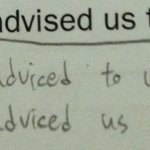 advised us t
adviced to u
adviced us